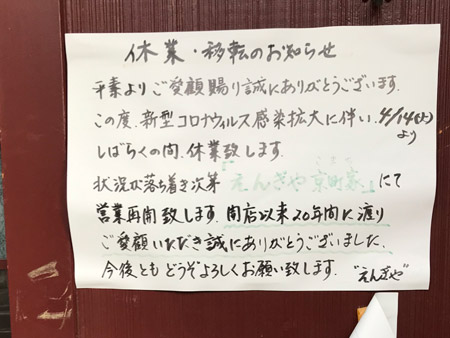 休業・移転のお知らせ
平素よりご愛顧賜り誠にありがとうございます.
この度.新型コロナウィルス感染拡大に伴い.4/14(火)より
しばらくの間.休業致します.
状況が落ち着き次第『えんぎや京町家』にて
営業再開致します.開店以来20年間に渡り
ご愛顧いただき誠にありがとうございました.
今後ともどうぞよろしくお願い致します.
"えんぎや"